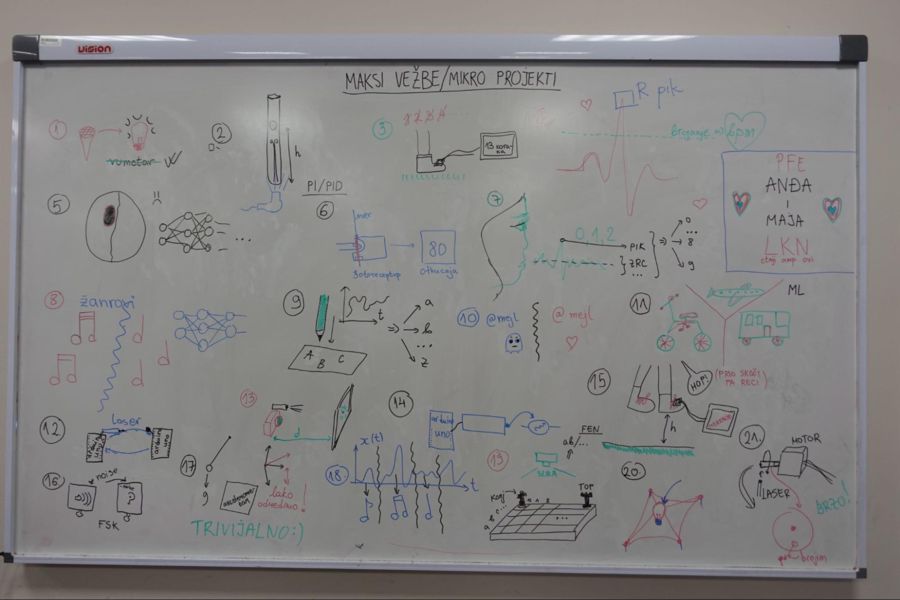 VISION
MAKSI VEŽBE/MIKRO PROJEKTI
R pik
1
2
3
13 KORAKA
brojanje bpm
h
PI/PID
PFE
ANĐA
I
MAJA
LKN
5
...
6
80
otkucaja
fotoreceptor
7
0,1,2
PIK
ZRC
...
0
...
8
9
8
žanrovi
9
t
A B C
a
b
...
z
10
@mejl
@mejl
11
ML
(PRVO SKOČI
PA RECI)
12
laser
arduino
uno
13
d
14
arduino
uno
15
HOP!
h
16
noise
FSK
17
g
lako
odredimo!
TRIVIJALNO:)
18
x(t)
t
19
FEN
konj
TOP
a
b
...
20
21.
MOTOR
LASER
BRZO!
brojim